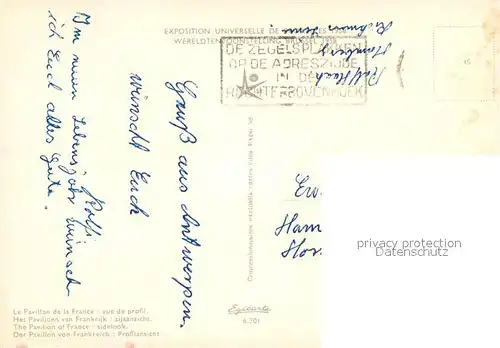 EXPOSITION UNIVERSELLE DE
WERELDTENTOONSTELLING
DE ZEGELS PLAKKEN
OP DE ADRESZIJDE
IN DE
RECHTERBOVENHOEK
Gruß aus Antwerpen.
wünscht Euch
Rolf.
Im neuen Lebensjahr wünsch
ich Euch alles Gute.
Hamburg
Ew
Ham
Hor
privacy protection
Datenschutz
Le Pavillon de la France : vue de profil.
Het Paviljoen van Frankrijk : zijaanzicht.
The Pavilion of France : sidelook.
Der Pavillon von Frankreich : Profilansicht
Egicarte
6.701